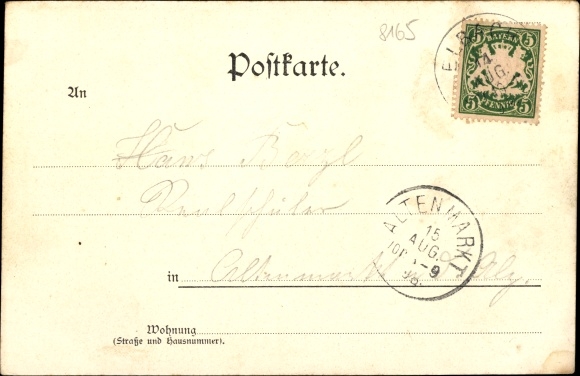 8165
Postkarte.
BAYERN
5 5
PFENNIG
5 5
14
AUG.
An
Hans
Realschüler
ALTENMARKT
15
AUG.
98
in Altenmarkt Alz.
Wohnung
(Straße und Hausnummer).